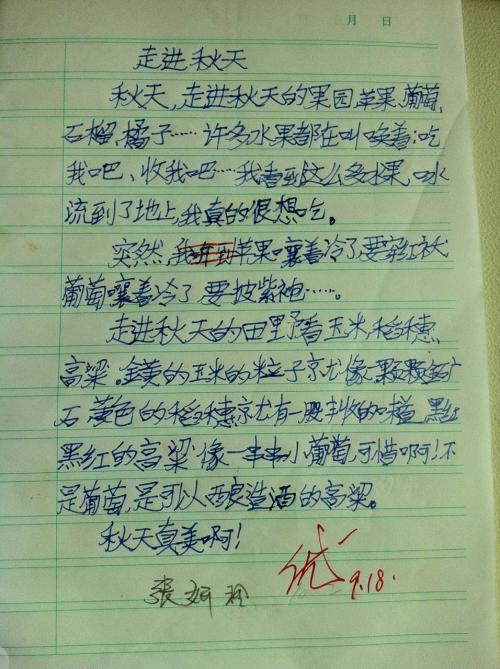 月 日
走进秋天
秋天,走进秋天的果园苹果、葡萄,
石榴,橘子……许多水果都在叫唤着:吃
我吧、收我吧……我看到这么多水果,口水
流到了地上,我真的很想吃。
突然,苹果嚷着冷了要穿红袄
葡萄嚷着冷了要披紫袍……。
走进秋天的田里看玉米,稻穗,
高梁。金黄的玉米的粒子就像一颗颗金矿
石黄色的稻穗就有一股丰收的味道黑红
黑红的高梁像一串串小葡萄,可惜啊!不
是葡萄,是可以酿造酒的高梁。
秋天真美啊!
优 9.18.
张 玲